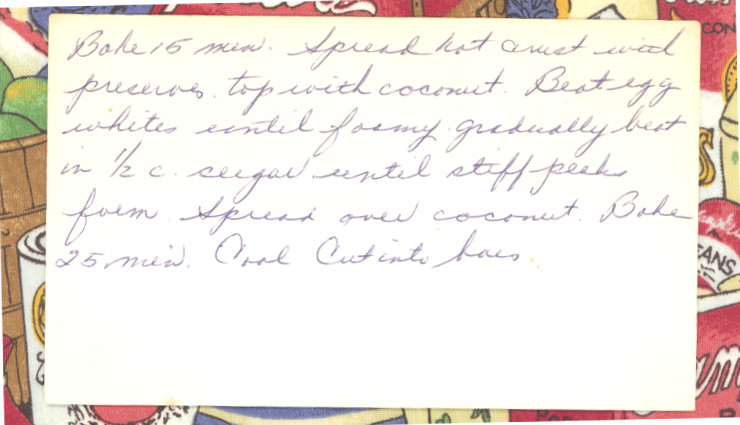 Bake 15 min. Spread hot crust with
preserves. top with coconut. Beat egg
whites until foamy. gradually beat
in 1/2 c. sugar until stiff peaks
form. Spread over coconut. Bake
25 min. Cool Cut into bars.
CON
S
EANS